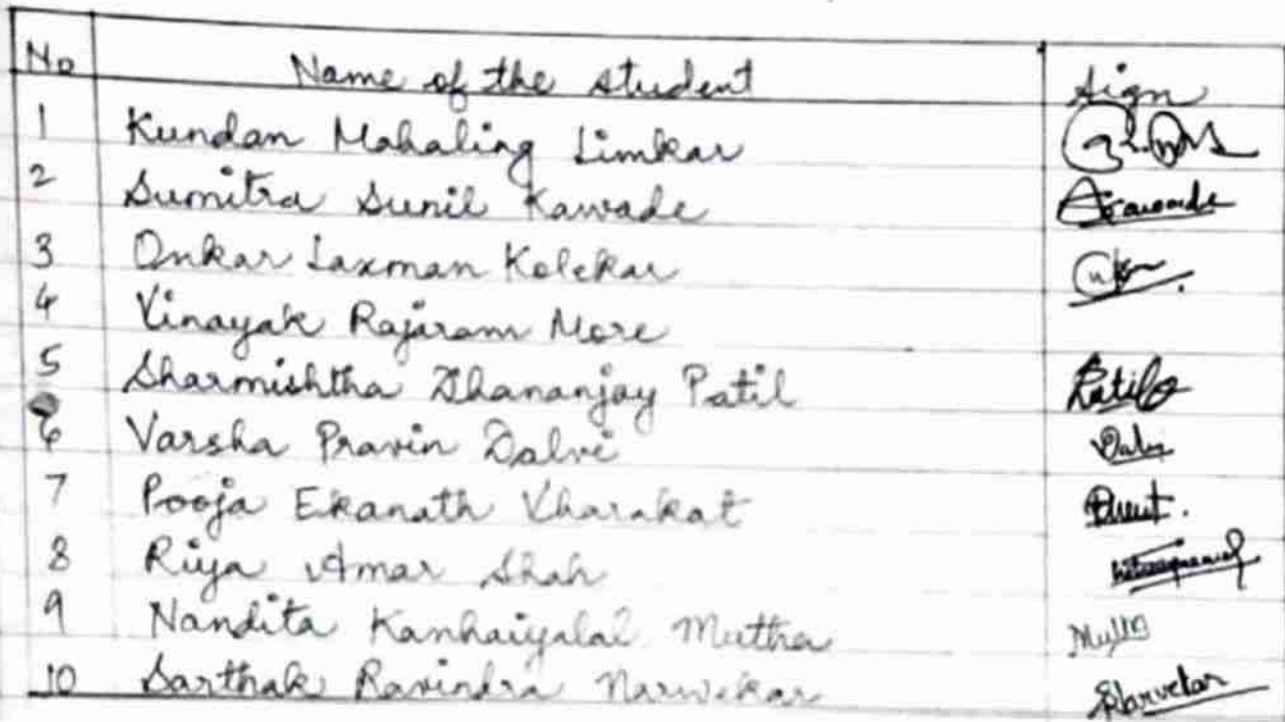 No Name of the student Sign
1 Kundan Mahaling Limkar
2 Sumitra Sunil Kawade
3 Onkar Laxman Kolekar
4 Vinayak Rajaram More
5 Sharmishtha Dhananjay Patil Patil
6 Varsha Pravin Dalvi
7 Pooja Ekanath Kharakat
8 Riya Amar Shah
9 Nandita Kanhaiyalal Mutha
10 Sarthak Ravindra Narvekar Narvekar